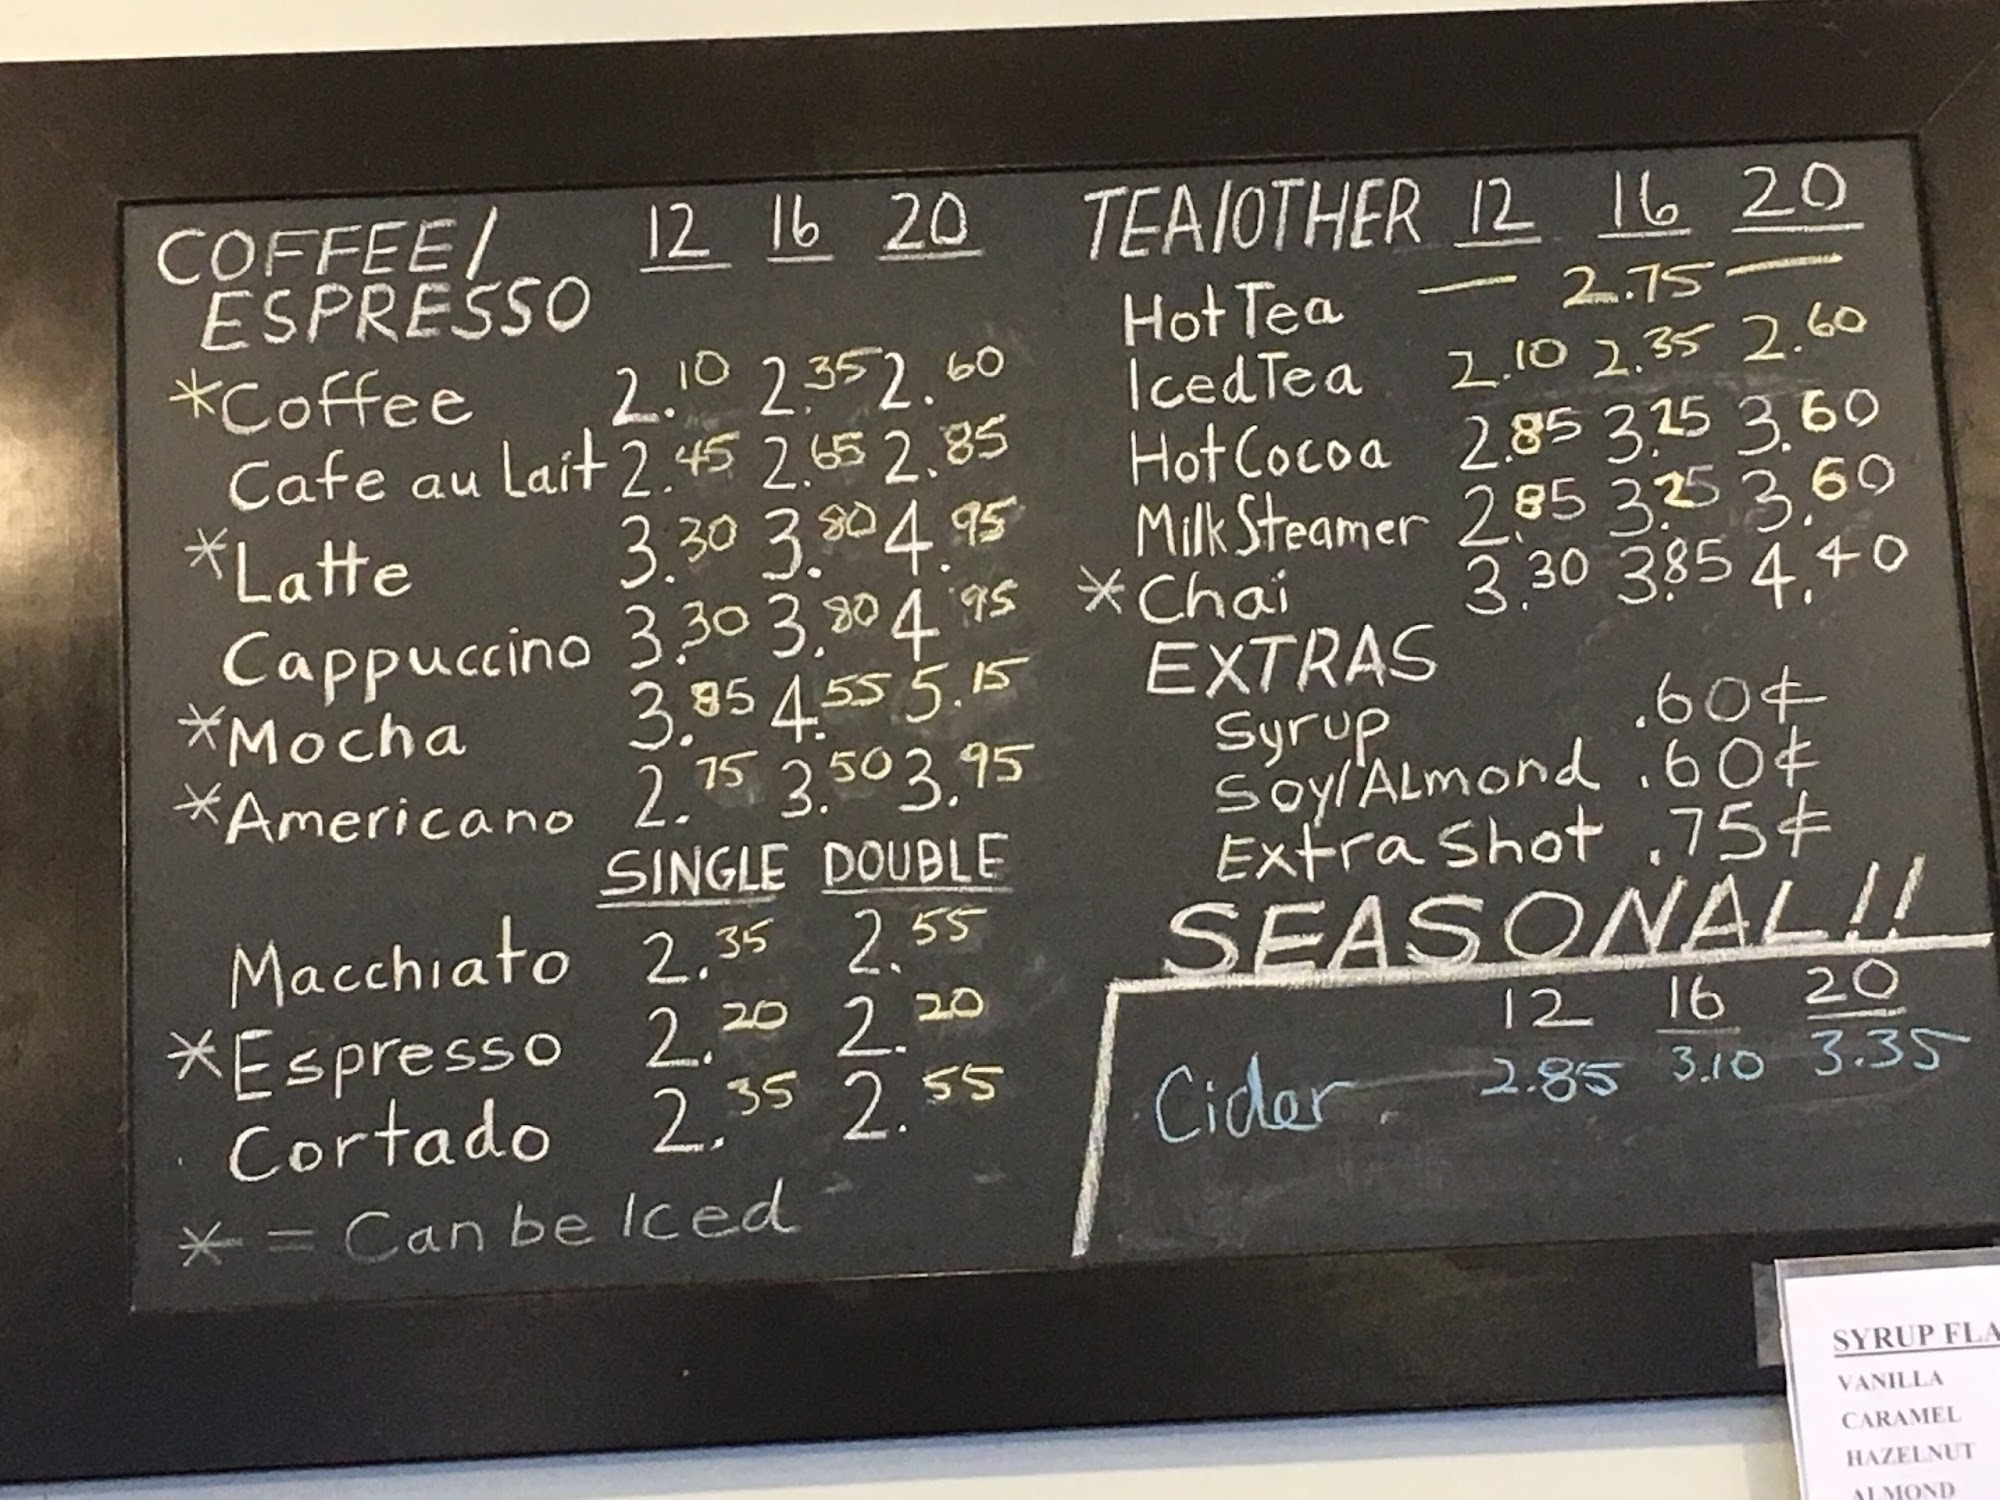 COFFEE/ 12 16 20
ESPRESSO
*Coffee 2.10 2.35 2.60
Cafe au Lait 2.45 2.65 2.85
*Latte 3.30 3.80 4.95
Cappuccino 3.30 3.80 4.95
*Mocha 3.85 4.55 5.15
*Americano 2.75 3.50 3.95
SINGLE DOUBLE
Macchiato 2.35 2.55
*Espresso 2.20 2.20
Cortado 2.35 2.55
* = Can be Iced
TEA/OTHER 12 16 20
Hot Tea — 2.75 —
Iced Tea 2.10 2.35 2.60
Hot Cocoa 2.85 3.25 3.60
Milk Steamer 2.85 3.25 3.60
*Chai 3.30 3.85 4.40
EXTRAS
Syrup .60¢
Soy/Almond .60¢
Extra Shot .75¢
SEASONAL!!
12 16 20
Cider 2.85 3.10 3.35
SYRUP FLA
VANILLA
CARAMEL
HAZELNUT
ALMOND